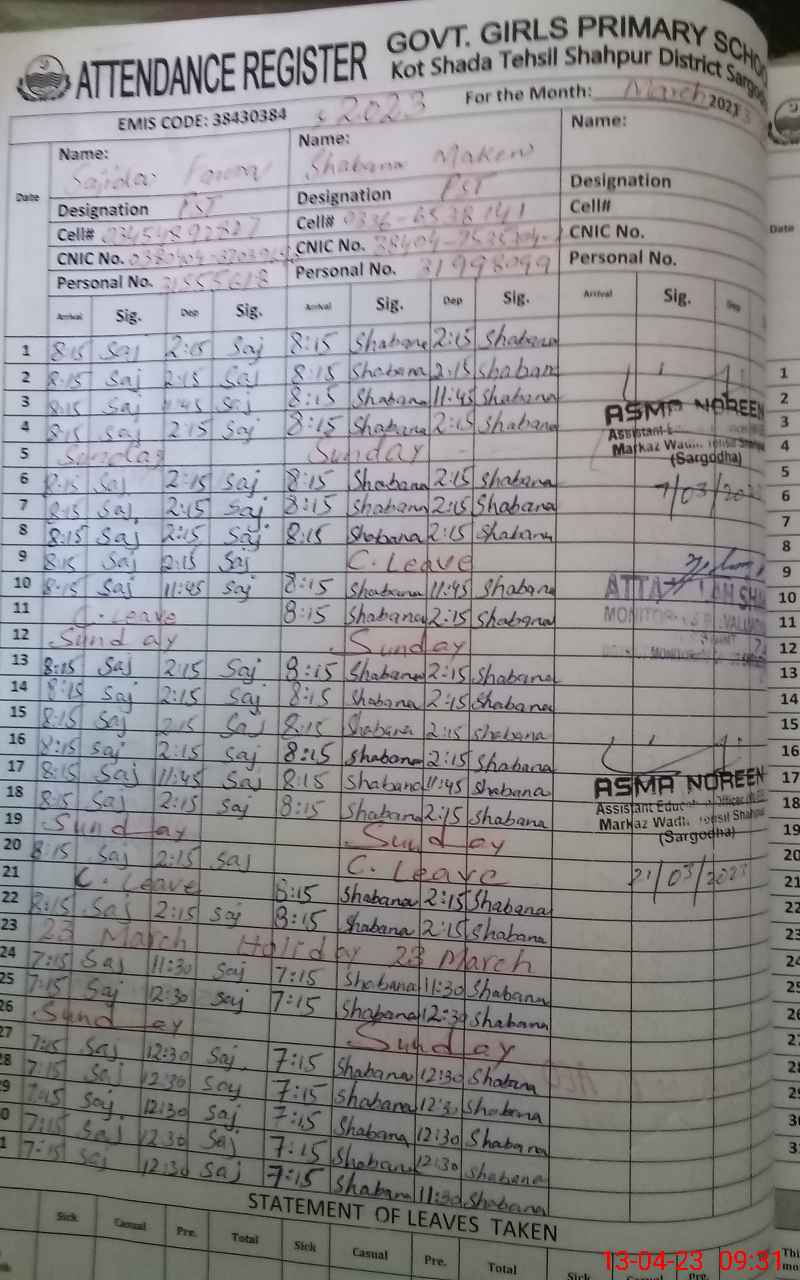 ATTENDANCE REGISTER
GOVT. GIRLS PRIMARY SCHOO
Kot Shada Tehsil Shahpur District Sargod
EMIS CODE: 38430384 2023 For the Month: March 2023
Date Name: Sajida Name: Shabana Name:
Designation PST Designation PST Designation
Cell# Cell# 0336-6538141 Cell#
CNIC No. CNIC No. CNIC No.
Personal No. Personal No. 31998099 Personal No.
Arrival Sig. Dep Sig. Arrival Sig. Dep Sig. Arrival Sig. Dep
1 8:15 Saj 2:15 Saj 8:15 Shabana 2:15 Shabana
2 8:15 Saj 2:15 Saj 8:15 Shabana 2:15 Shaban
3 8:15 Saj 11:45 Saj 8:15 Shabana 11:45 Shabana
4 8:15 Saj 2:15 Saj 8:15 Shabana 2:15 Shabana
5 Sunday Sunday
6 8:15 Saj 2:15 Saj 8:15 Shabana 2:15 Shabana
7 8:15 Saj 2:15 Saj 8:15 Shabana 2:15 Shabana
8 8:15 Saj 2:15 Saj 8:15 Shabana 2:15 Shabana
9 8:15 Saj 2:15 Saj C. Leave
10 8:15 Saj 11:45 Saj 8:15 Shabana 11:45 Shabana
11 C. Leave 8:15 Shabana 2:15 Shabana
12 Sunday Sunday
13 8:15 Saj 2:15 Saj 8:15 Shabana 2:15 Shabana
14 8:15 Saj 2:15 Saj 8:15 Shabana 2:15 Shabana
15 8:15 Saj 2:15 Saj 8:15 Shabana 2:15 Shabana
16 8:15 Saj 2:15 Saj 8:15 Shabana 2:15 Shabana
17 8:15 Saj 11:45 Saj 8:15 Shabana 11:45 Shabana
18 8:15 Saj 2:15 Saj 8:15 Shabana 2:15 Shabana
19 Sunday Sunday
20 8:15 Saj 2:15 Saj C. Leave
21 C. Leave 8:15 Shabana 2:15 Shabana
22 8:15 Saj 2:15 Saj 8:15 Shabana 2:15 Shabana
23 23 March Holiday 23 March
24 7:15 Saj 11:30 Saj 7:15 Shabana 11:30 Shabana
25 7:15 Saj 12:30 Saj 7:15 Shabana 12:30 Shabana
26 Sunday Sunday
27 7:15 Saj 12:30 Saj 7:15 Shabana 12:30 Shabana
28 7:15 Saj 12:30 Saj 7:15 Shabana 12:30 Shabana
9 7:15 Saj 12:30 Saj 7:15 Shabana 12:30 Shabana
0 7:15 Saj 12:30 Saj 7:15 Shabana 12:30 Shabana
1 7:15 Saj 12:30 Saj 7:15 Shabana 11:30 Shabana
ASMA NOREEN
Markaz
(Sargodha)
7/03/202
MONITOR
ASMA NOREEN
Assistant Educat
Markaz Wadh Tehsil Shahp
(Sargodha)
21/03/2023
STATEMENT OF LEAVES TAKEN
Sick Casual Pre. Total Sick Casual Pre. Total Sick Casual Pre.
Date
1
2
3
4
5
6
7
8
9
10
11
12
13
14
15
16
17
18
19
20
21
22
23
24
25
26
27
28
29
30
31
Thi
mo
13-04-23 09:31